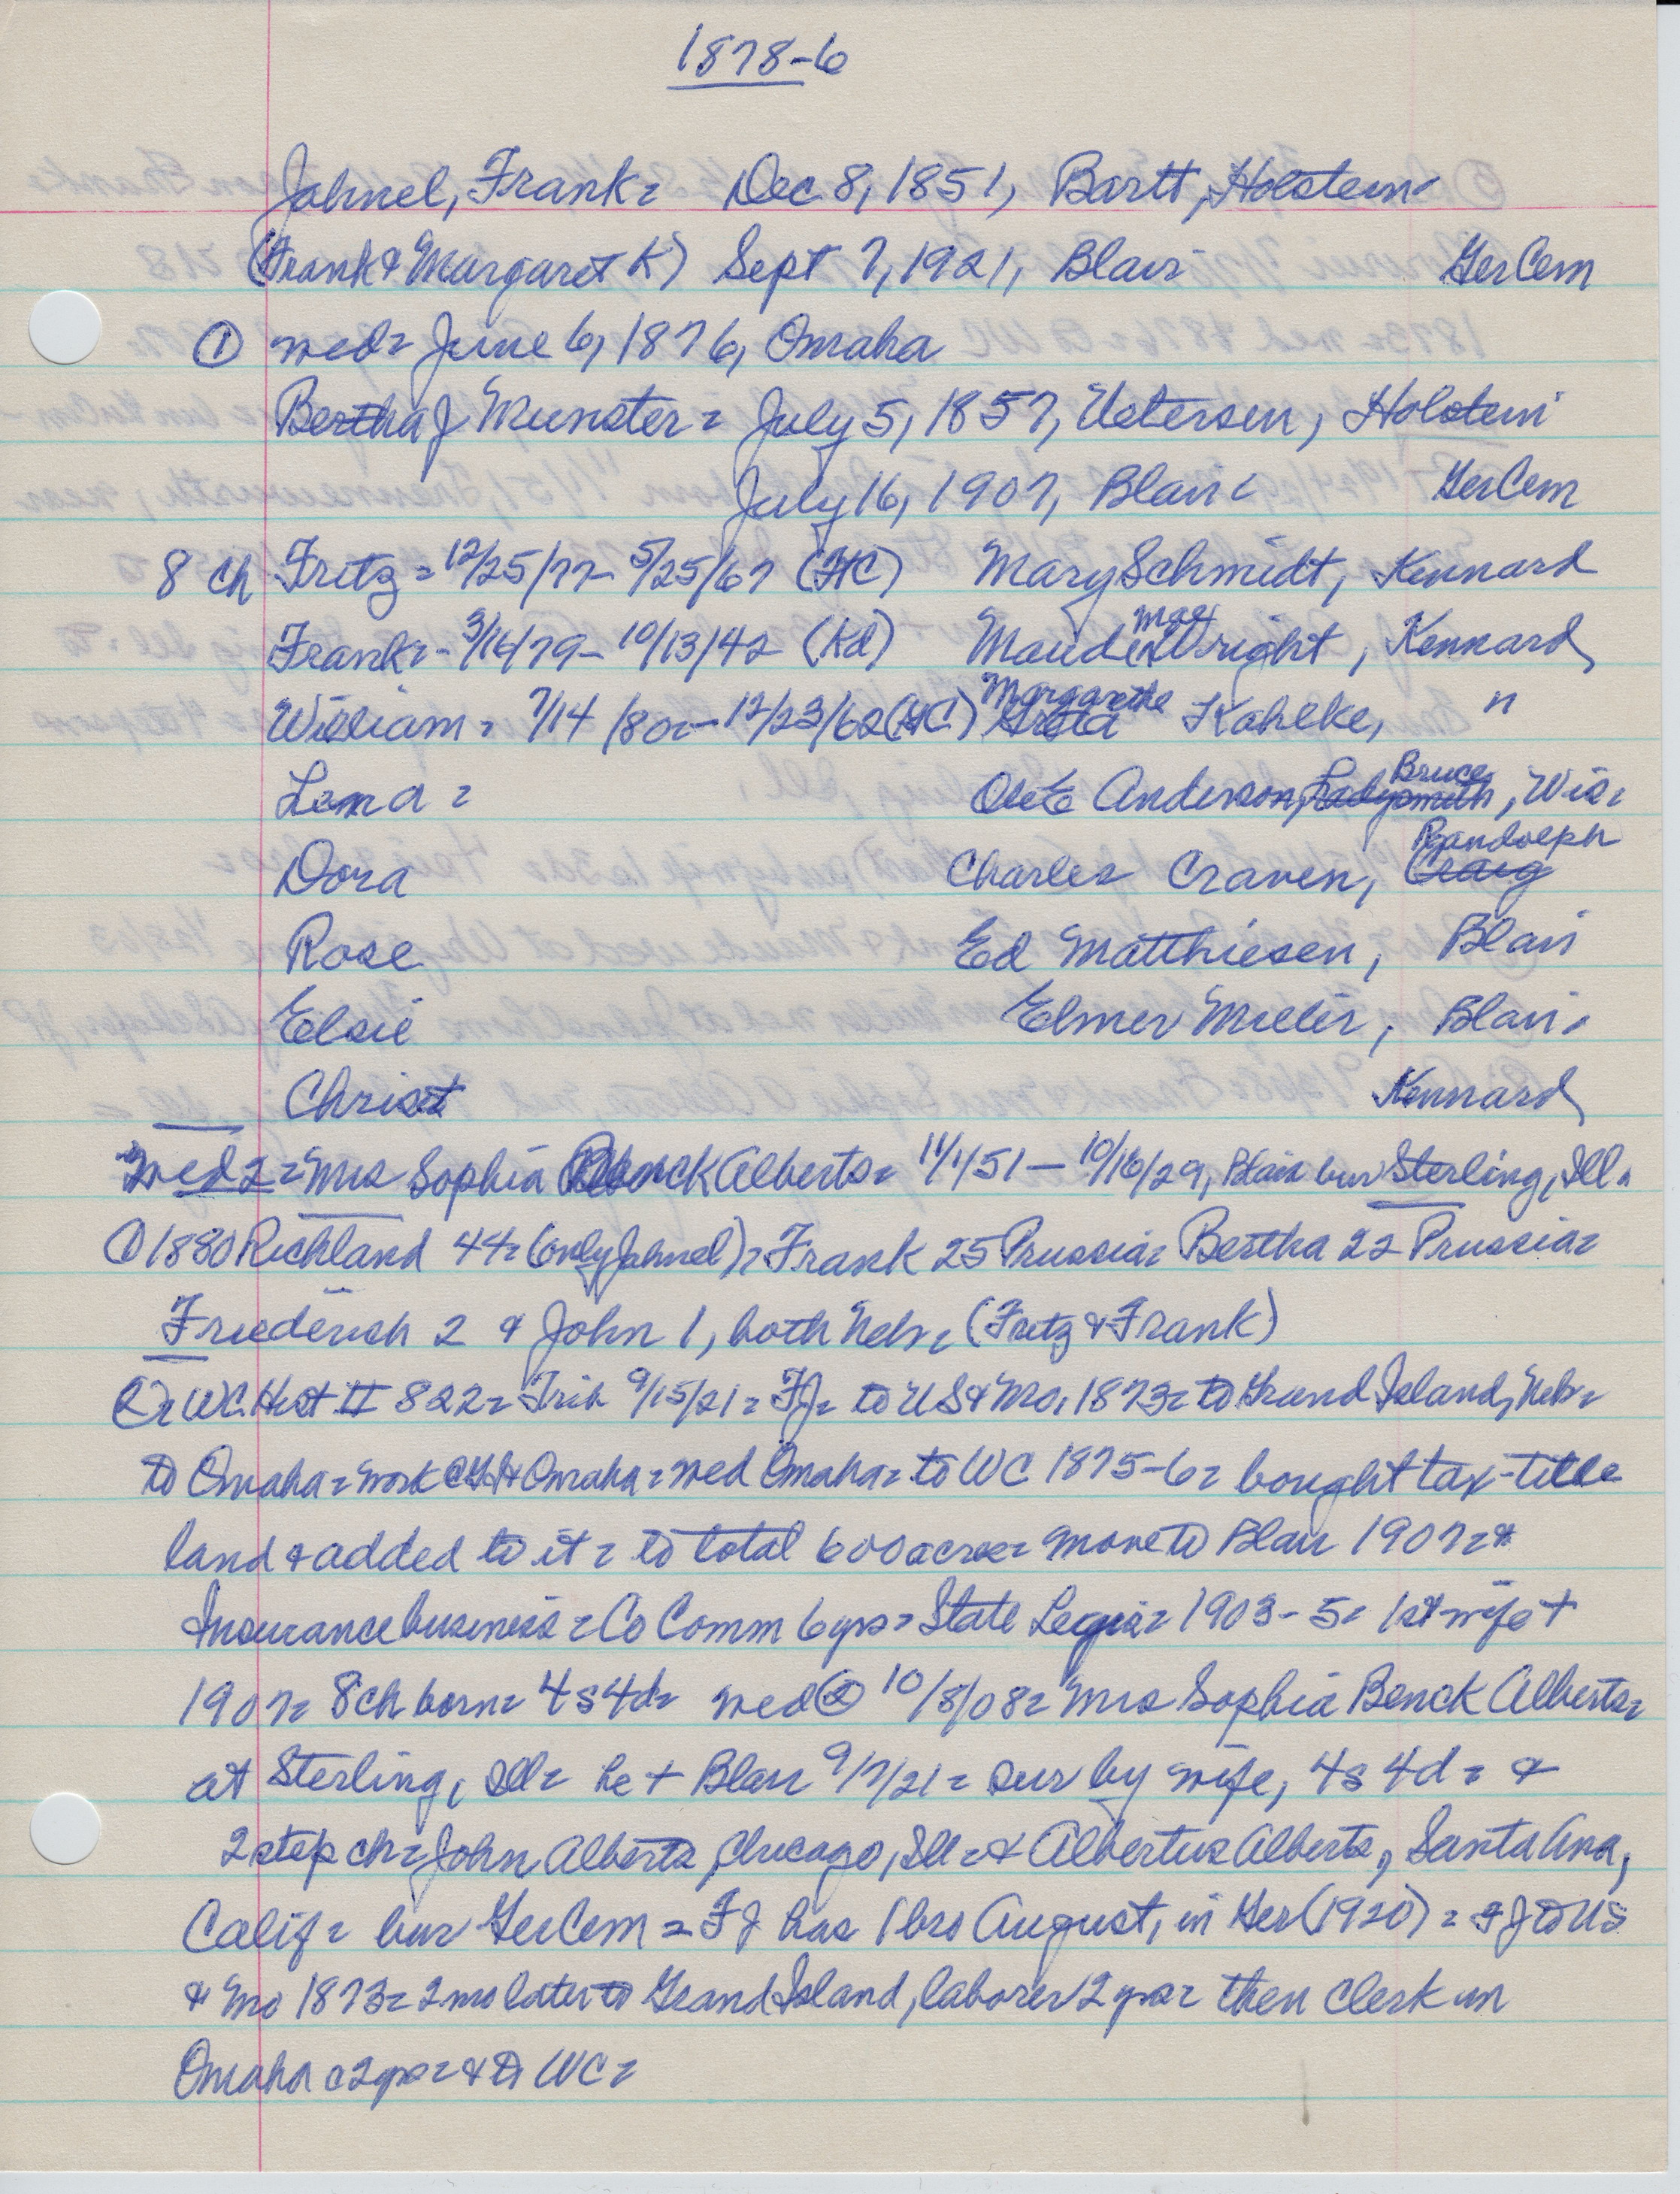 1878-6
Jahnel, Frank = Dec 8, 1851, Bartt, Holstein
(Frank & Margaret K) Sept 7, 1921, Blair GerCem
① wed = June 6, 1876, Omaha
Bertha J Munster = July 5, 1857, Uetersen, Holstein
July 16, 1907, Blair = GerCem
8 ch Fritz = 12/25/77 - 5/25/67 (HC) Mary Schmidt, Kennard
Frank = - 3/16/79 - 10/13/42 (Kd) Maude Mae Wright, Kennard
William = 7/14/80 = - 12/23/62 (HC) Margarethe Greta Kahlke, "
Lena = Anderson, Ladysmith Bruce, Wis =
Dora Charles Craven, Craig Randolph
Rose Ed Matthiesen, Blair
Elsie Elmer Miller, Blair
Christ Kennard
wed 2 = Mrs Sophia Benck Alberts = 11/1/51 - 10/16/29, Blair bur Sterling, Ill =
① 1880 Richland 44 = (only Jahnel) = Frank 25 Prussia = Bertha 22 Prussia =
Friederich 2 & John 1, both Neb = (Fritz & Frank)
② = WC Hist II 822 = Trib 9/15/21 = FJ = to US & Mo, 1873 = to Grand Island, Neb =
to Omaha = work Omaha = wed Omaha = to WC 1875-6 = bought tax-title
land & added to it = to total 600 acres = move to Blair 1907 = &
Insurance business = Co Comm 6 yrs = State Legis = 1903-5 = 1st wife +
1907 = 8 ch born = 4s 4d = wed ② 10/8/08 = Mrs Sophia Benck Alberts =
at Sterling, Ill = he + Blair 9/7/21 = sur by wife, 4s 4d = &
2 step ch = John Alberts, Chicago, Ill = & Albertus Alberts, Santa Ana,
Calif = bur GerCem = FJ has 1 bro August, in Ger (1920) = FJ to US
& Mo 1873 = 2 mo later to Grand Island, laborer 2 yrs = then clerk in
Omaha c 2 yrs = & to WC =